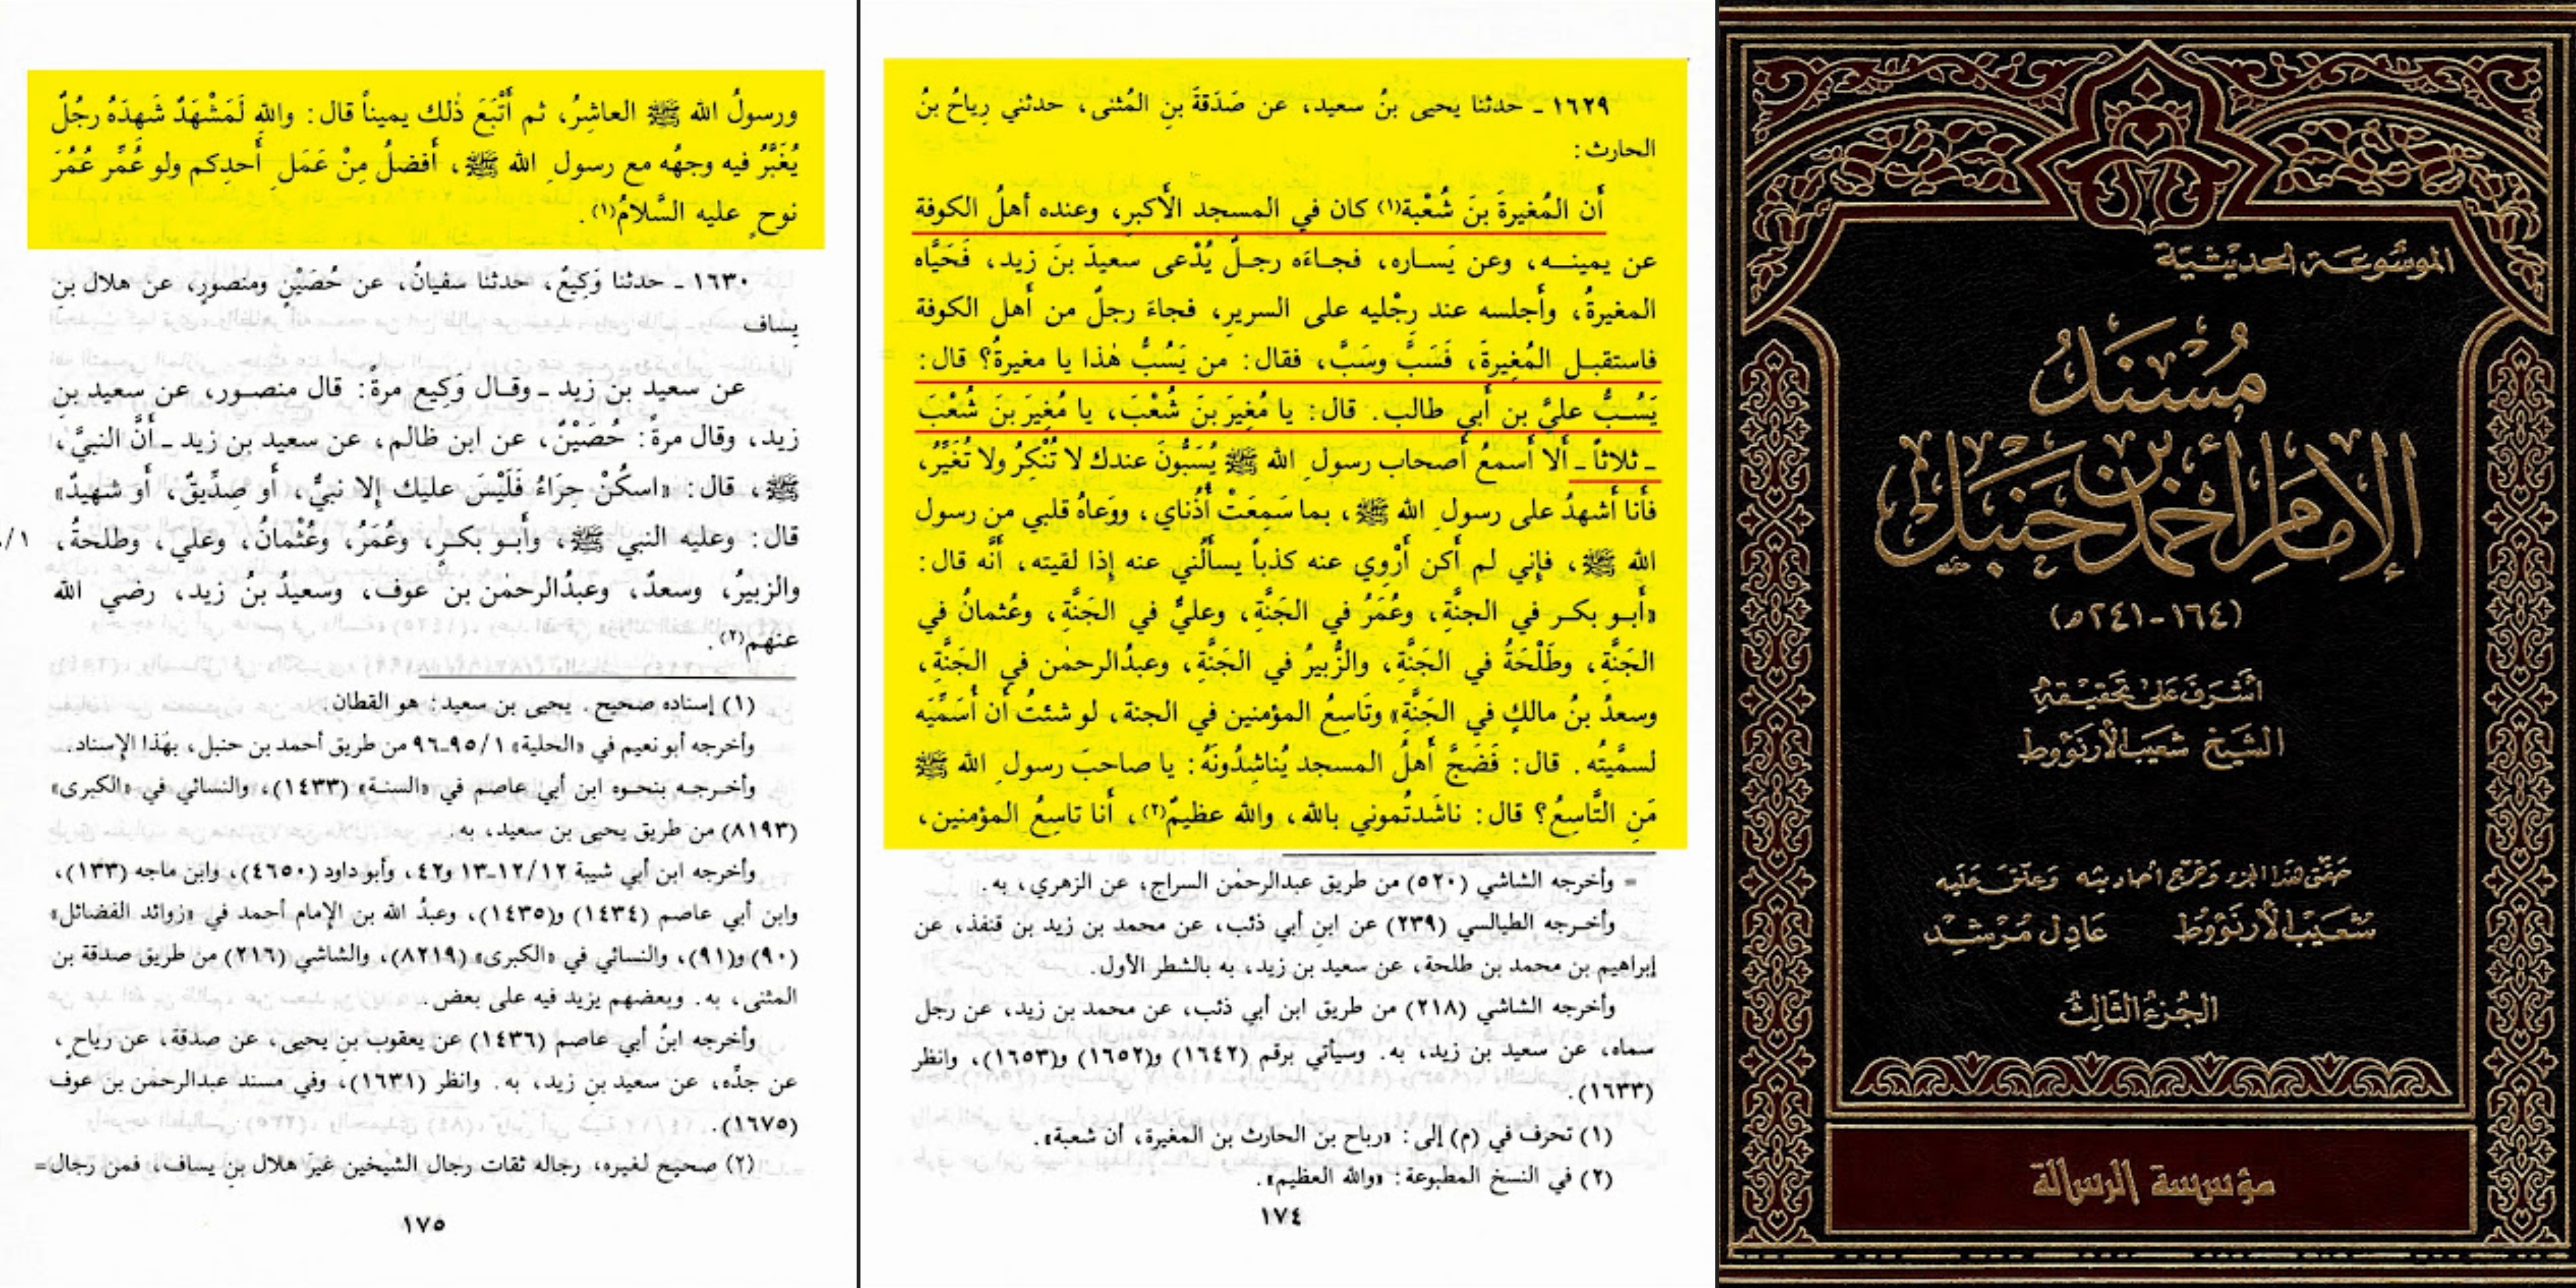 الموسوعة الحديثية
مُسْنَدُ
الإمام أحمد بن حنبل
(١٦٤-٢٤١هـ)
أشرف على تحقيقه
الشيخ شعيب الأرنؤوط
حقق هذا الجزء وخرج أحاديثه وعلق عليه
شعيب الأرنؤوط عادل مرشد
الجزء الثالث
مؤسسة الرسالة
١٦٢٩ ـ حدثنا يحيى بنُ سعيد، عن صَدَقةَ بنِ المُثنى، حدثني رِياحُ بنُ
الحارث:
أَن المُغيرةَ بنَ شُعْبة(١) كان في المسجد الأَكبرِ، وعنده أَهلُ الكوفة
عن يمينـه، وعن يَساره، فجاءَه رجـلٌ يُدْعى سعيدَ بنَ زيد، فَحَيَّاه
المغيرةُ، وأَجلسه عند رِجْليه على السريرِ، فجاءَ رجلٌ من أَهل الكوفة
فاستقبـل المُغِيرةَ، فَسَبَّ وسَبَّ، فقال: من يَسُبُّ هٰذا يا مغيرةُ؟ قال:
يَسُـبُّ عليَّ بن أَبي طالب. قال: يا مُغِيرَ بنَ شُعْبَ، يا مُغِيَر بنَ شُعْبَ
ـ ثلاثاً ـ أَلا أَسمعُ أَصحاب رسول الله ﷺ يُسَبُّونَ عندك لا تُنْكِرُ ولا تُغَيِّرُ،
فأَنا أَشهدُ على رسول الله ﷺ، بما سَمعَتْ أُذُناي، ووَعاهُ قلبي من رسول
الله ﷺ، فإِني لم أَكن أَرْوي عنه كذباً يسأَلُني عنه إِذا لقيته، أَنَّه قال:
«أَبـو بكـر في الجنَّةِ، وعُمَرُ في الجَنَّةِ، وعليٌّ في الجَنَّةِ، وعُثمانُ في
الجَنَّةِ، وطَلْحَةُ في الجَنَّةِ، والزُّبيرُ في الجَنَّةِ، وعبدُالرحمٰن في الجَنَّةِ،
وسعدُ بنُ مالكٍ في الجَنَّةِ» وتَاسِعُ المؤمنين في الجنة، لو شئتُ أَن أُسَمِّيَه
لسمَّيتُه. قال: فَضَجَّ أَهلُ المسجد يُناشِدُونَهُ: يا صاحب رسول الله ﷺ
مَنِ التَّاسِعُ؟ قال: ناشَدتُموني بالله، والله عظيمٌ(٢)، أَنا تاسِعُ المؤمنين،
= وأخرجه الشاشي (٥٢٠) من طريق عبدالرحمٰن السراج، عن الزهري، به.
وأخـرجـه الطيالسي (٢٣٩) عن ابنِ أبي ذئب، عن محمد بن زيد بن قنفذ، عن
إبراهيم بن محمد بن طلحة، عن سعيد بن زيد، به بالشطر الأول.
وأخرجه الشاشي (٢١٨) من طريق ابن أبي ذئب، عن محمد بن زيد، عن رجل
سماه، عن سعيد بن زيد، به. وسيأتي برقم (١٦٤٢) و(١٦٥٢) و(١٦٥٣)، وانظر
(١٦٣٣).
(١) تحرف في (م) إلى: «رباح بن الحارث بن المغيرة، أن شعبة».
(٢) في النسخ المطبوعة: «والله العظيم».
١٧٤
ورسولُ الله ﷺ العاشِرُ، ثم أَتْبَعَ ذٰلك يميناً قال: واللهِ لَمَشْهَدٌ شَهِدَهُ رجُلٌ
يُغَبَّرُ فيه وجهُه مع رسول الله ﷺ، أَفضلُ مِنْ عَمَلِ أَحدِكم ولو عُمِّرَ عُمُرَ
نوحٍ عليه السَّلامُ(١).
١٦٣٠ ـ حدثنا وَكِيعٌ، حدثنا سفيانُ، عن حُصَيْنٍ ومنصورٍ، عن هلال بنِ
يِساف
عن سعيد بن زيد ـ وقـال وَكِيع مرةً: قال منصـور، عن سعيد بنِ
زيد، وقال مرةً: حُصَيْنٌ، عن ابن ظالم، عن سعيد بن زيد ـ أَنَّ النبيَّ،
ﷺ، قال: «اسكُنْ حِرَاءُ فَلَيْسَ عليك إِلا نبيٌّ، أَو صِدِّيقٌ، أَو شهيدٌ»
قال: وعليه النبي ﷺ، وأَبـو بكـرٍ، وعُمَرُ، وعُثْمانُ، وعلي، وطلحةُ،
والزبيرُ، وسعدٌ، وعبدُالرحمٰن بن عوف، وسعيدُ بنُ زيد، رضي الله
عنهم(٢).
(١) إسناده صحيح. يحيى بن سعيد: هو القطان.
وأخرجه أبو نعيم في «الحلية» ٩٥/١-٩٦ من طريق أحمد بن حنبل، بهٰذا الإسناد.
وأخـرجـه بنحـوه ابن أبي عاصم في «السنـة» (١٤٣٣)، والنسائي في «الكبرى»
(٨١٩٣) من طريق يحيى بن سعيد، به.
وأخرجه ابن أبي شيبة ١٢/١٢-١٣ و٤٢، وأبو داود (٤٦٥٠)، وابن ماجه (١٣٣)،
وابن أبي عاصم (١٤٣٤) و(١٤٣٥)، وعبدُ الله بن الإمام أحمد في «زوائد الفضائل»
(٩٠) و(٩١)، والنسائي في «الكبرى» (٨٢١٩)، والشاشي (٢١٦) من طريق صدقة بن
المثنى، به. وبعضهم يزيد فيه على بعض.
وأخرجه ابنُ أبي عاصم (١٤٣٦) عن يعقوب بن يحيى، عن صدقة، عن رياحٍ،
عن جدِّه، عن سعيد بنِ زيد، به. وانظر (١٦٣١)، وفي مسند عبدالرحمٰن بن عوف
(١٦٧٥).
(٢) صحيح لغيره، رجاله ثقات رجال الشيخين غيرَ هلال بنِ يساف، فمن رجال=
١٧٥